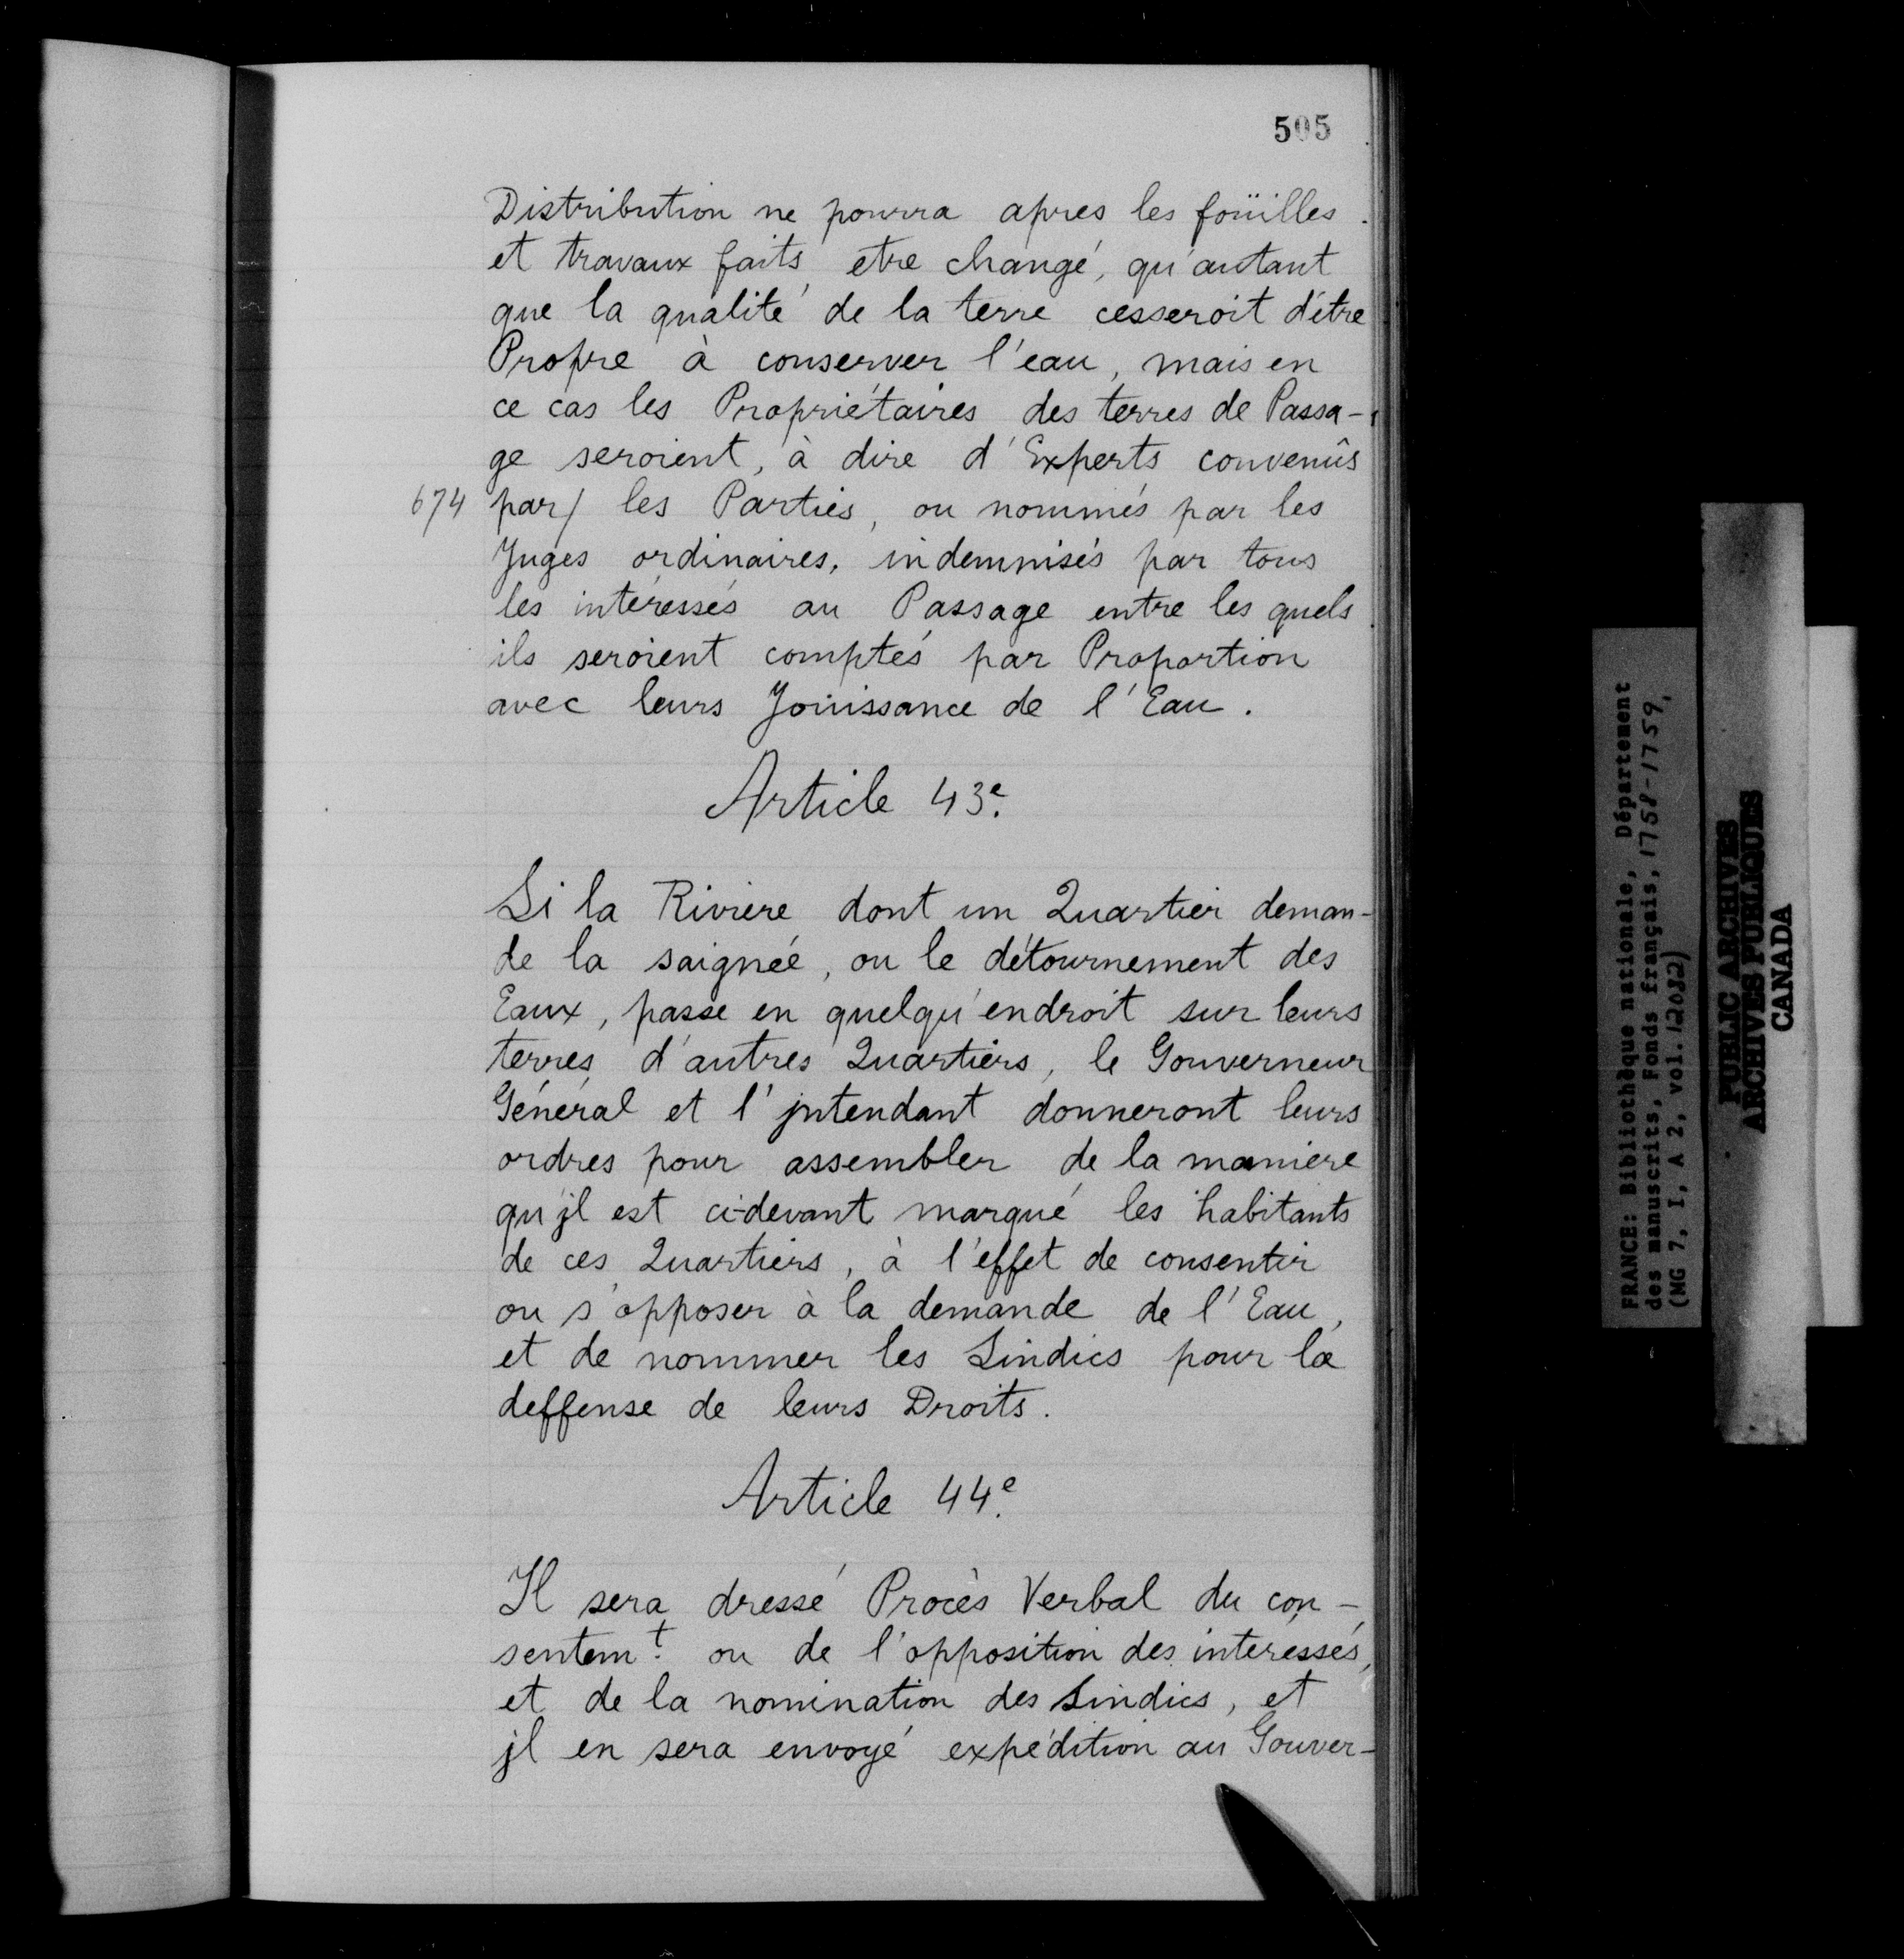 505
Distribution ne pourra apres les foüilles
et travaux faits etre changé, qu'autant
que la qualité de la terre cesseroit d'être
Propre à conserver l'eau, mais en
ce cas les Propriétaires des terres de Passa-
ge seroient, à dire d'Experts convenûs
674 par/ les Parties, ou nommés par les
Juges ordinaires, indemnisés par tous
les intéressés au Passage entre les quels
ils seroient comptés par Proportion
avec leurs Joüissance de l'Eau.
Article 43e.
Si la Riviere dont un Quartier deman-
de la saignée, ou le détournement des
Eaux, passe en quelqu'endroit sur leurs
terres d'autres Quartiers, le Gouverneur
Général et l'jntendant donneront leurs
ordres pour assembler de la maniere
qu'jl est ci-devant marqué les habitants
de ces Quartiers, à l'effet de consentir
ou s'opposer à la demande de l'Eau,
et de nommer les Sindics pour la
deffense de leurs Droits.
Article 44e.
Il sera dressé Procès Verbal du con-
sentemt. ou de l'opposition des intéressés,
et de la nomination des Sindics, et
jl en sera envoyé expédition au Gouver-
FRANCE: Bibliothèque nationale, Département
des manuscrits, Fonds français, 1758-1759,
(MG 7, I, A 2, vol. 12082)
PUBLIC ARCHIVES
ARCHIVES PUBLIQUES
CANADA